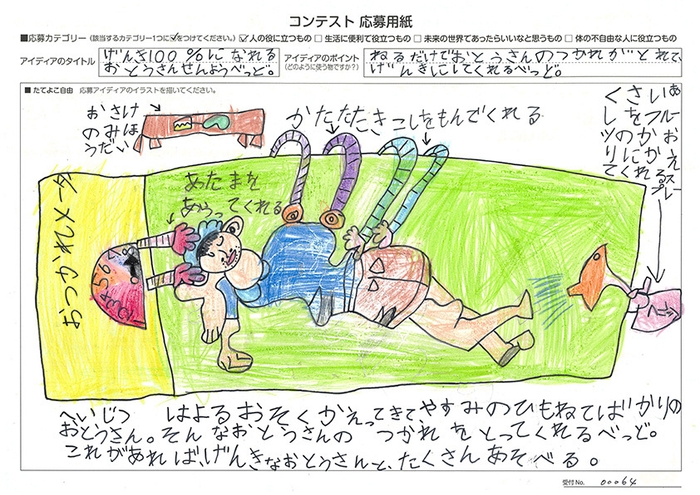 コンテスト 応募用紙
■応募カテゴリー (該当するカテゴリー1つに✓をつけてください。) ☑人の役に立つもの □生活に便利で役立つもの □未来の世界であったらいいなと思うもの □体の不自由な人に役立つもの
アイディアのタイトル
げんき100%になれる
おとうさんせんようべっど。
アイディアのポイント
(どのように使う物ですか?)
ねるだけでおとうさんのつかれがとれて、
げんきにしてくれるべっど。
■たてよこ自由 応募アイディアのイラストを描いてください。
おさけ
のみほ
うだい
かたたたきこしをもんでくれる
あたまを
あらってくれる
おつかれメータ
くさいあ
しをかえ
フルーツの
かおりに
かえてくれる
スプレー
へいじつ はよるおそくかえってきてやすみのひもねてばかりの
おとうさん。そんなおとうさんの つかれをとってくれるべっど。
これがあれば、げんきなおとうさんと、たくさんあそべる。
受付No. 00064